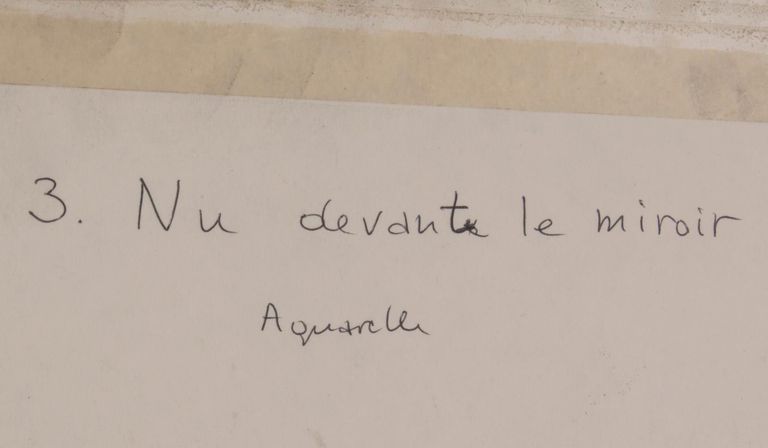 3. Nu devant le miroir
Aquarelle